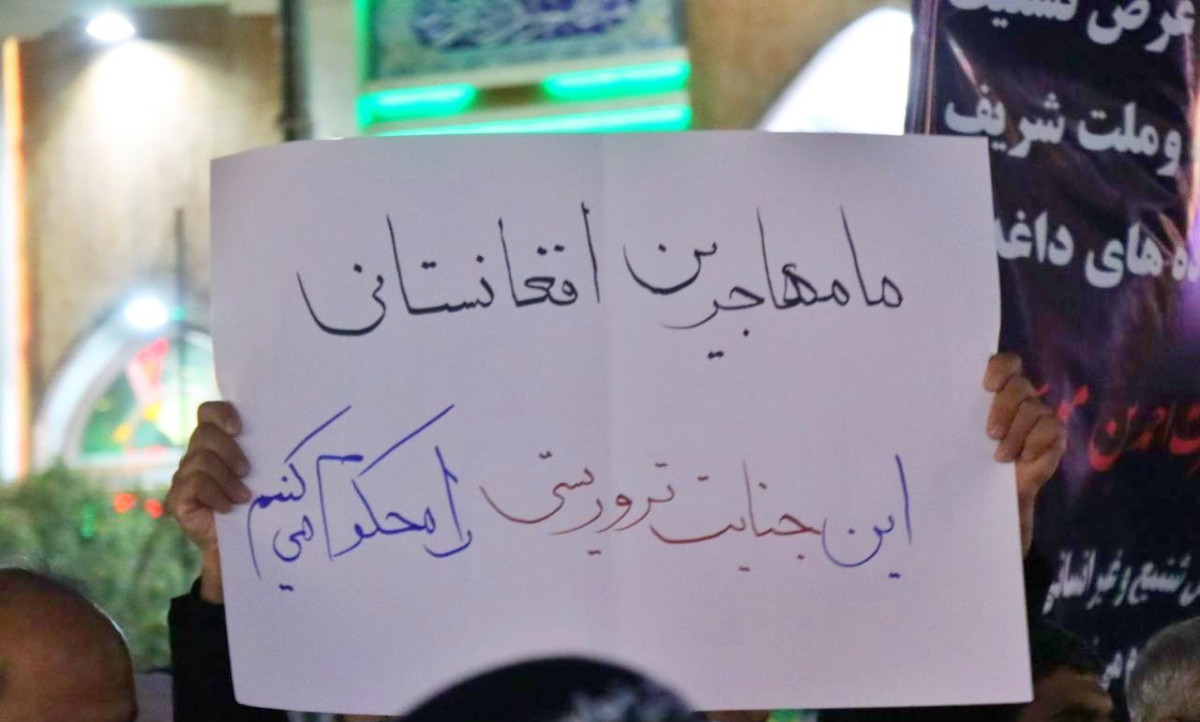 ما مهاجرین افغانستانی
این جنایت تروریستی را محکوم می کنیم
عرض تسلیت
وملت شریف
ه های داغد
شنیع و غیرانسانی